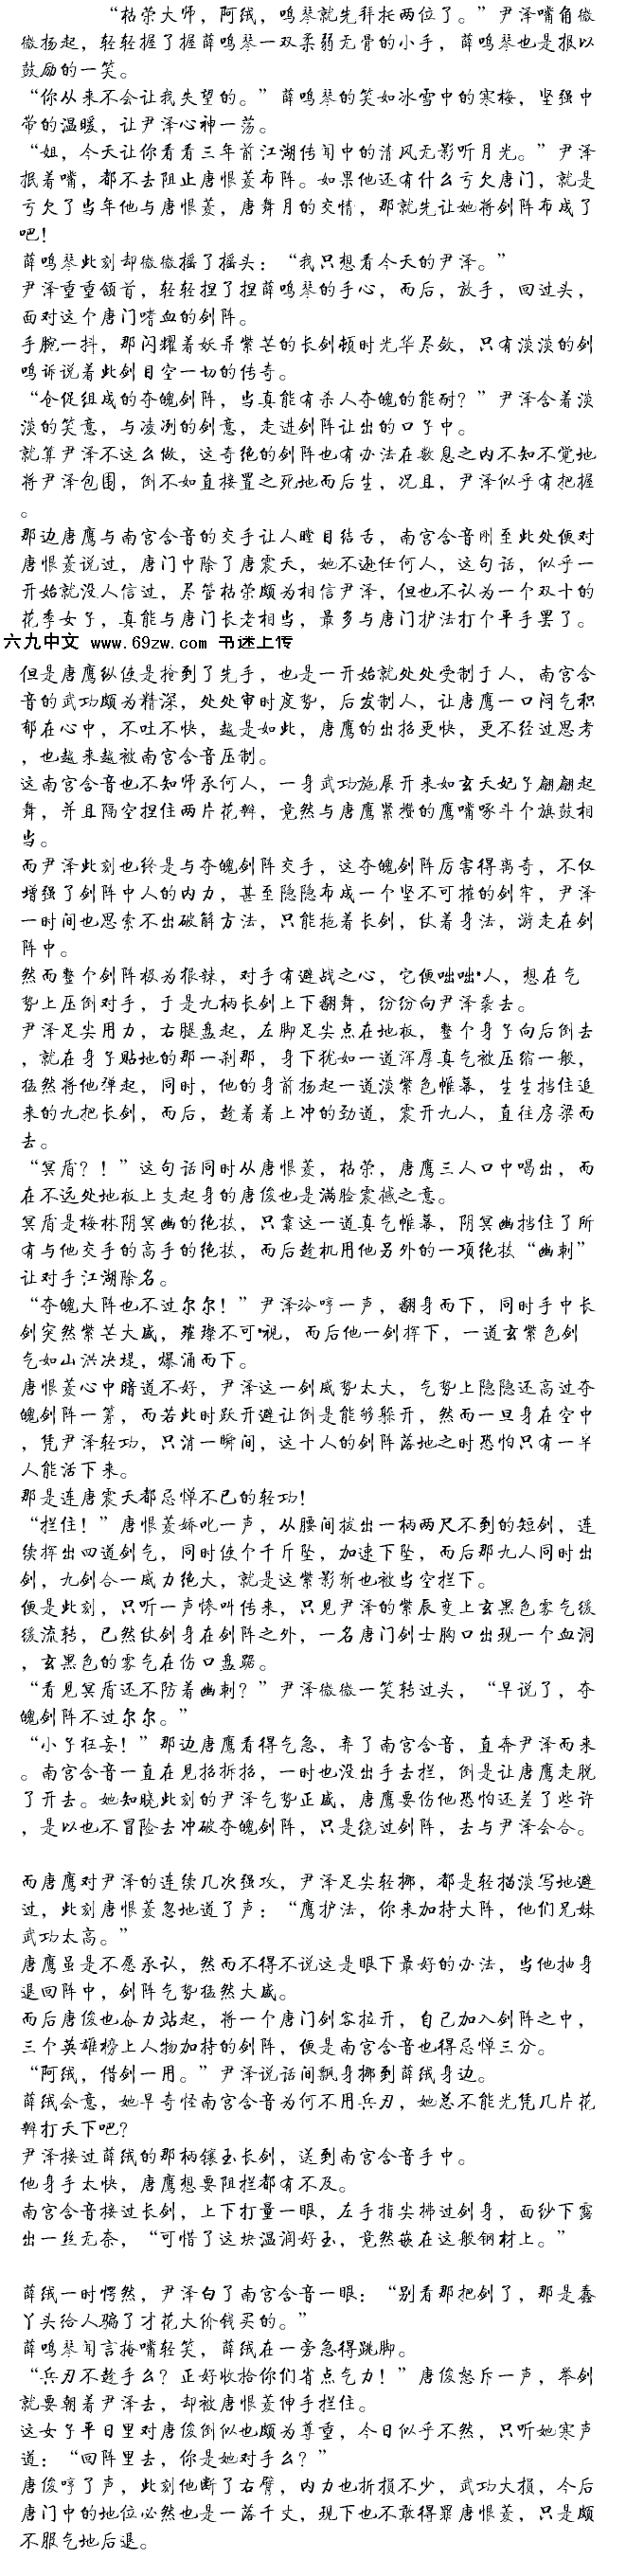 “枯荣大师，阿绒，鸣琴就先拜托两位了。”尹泽嘴角微
微扬起，轻轻握了握薛鸣琴一双柔弱无骨的小手，薛鸣琴也是报以
鼓励的一笑。
“你从来不会让我失望的。”薛鸣琴的笑如冰雪中的寒梅，坚强中
带的温暖，让尹泽心神一荡。
“姐，今天让你看看三年前江湖传闻中的清风无影听月光。”尹泽
抿着嘴，都不去阻止唐恨菱布阵。如果他还有什么亏欠唐门，就是
亏欠了当年他与唐恨菱，唐舞月的交情，那就先让她将剑阵布成了
吧！
薛鸣琴此刻却微微摇了摇头：“我只想看今天的尹泽。”
尹泽重重颔首，轻轻捏了捏薛鸣琴的手心，而后，放手，回过头，
面对这个唐门嗜血的剑阵。
手腕一抖，那闪耀着妖异紫芒的长剑顿时光华尽敛，只有淡淡的剑
鸣诉说着此剑目空一切的传奇。
“仓促组成的夺魄剑阵，当真能有杀人夺魄的能耐？”尹泽含着淡
淡的笑意，与凌冽的剑意，走进剑阵让出的口子中。
就算尹泽不这么做，这奇绝的剑阵也有办法在数息之内不知不觉地
将尹泽包围，倒不如直接置之死地而后生，况且，尹泽似乎有把握
。
那边唐鹰与南宫含音的交手让人瞠目结舌，南宫含音刚至此处便对
唐恨菱说过，唐门中除了唐震天，她不逊任何人，这句话，似乎一
开始就没人信过，尽管枯荣颇为相信尹泽，但也不认为一个双十的
花季女子，真能与唐门长老相当，最多与唐门护法打个平手罢了。
六九中文 www.69zw.com 书迷上传
但是唐鹰纵使是抢到了先手，也是一开始就处处受制于人，南宫含
音的武功颇为精深，处处审时度势，后发制人，让唐鹰一口闷气积
郁在心中，不吐不快，越是如此，唐鹰的出招更快，更不经过思考
，也越来越被南宫含音压制。
这南宫含音也不知师承何人，一身武功施展开来如玄天妃子翩翩起
舞，并且隔空捏住两片花瓣，竟然与唐鹰紧攒的鹰嘴啄斗个旗鼓相
当。
而尹泽此刻也终是与夺魄剑阵交手，这夺魄剑阵厉害得离奇，不仅
增强了剑阵中人的内力，甚至隐隐布成一个坚不可摧的剑牢，尹泽
一时间也思索不出破解方法，只能拖着长剑，仗着身法，游走在剑
阵中。
然而整个剑阵极为狠辣，对手有避战之心，它便咄咄·人，想在气
势上压倒对手，于是九柄长剑上下翻舞，纷纷向尹泽袭去。
尹泽足尖用力，右腿盘起，左脚足尖点在地板，整个身子向后倒去
，就在身子贴地的那一刹那，身下犹如一道浑厚真气被压缩一般，
猛然将他弹起，同时，他的身前扬起一道淡紫色帷幕，生生挡住追
来的九把长剑，而后，趁着着上冲的劲道，震开九人，直往房梁而
去。
“冥盾？！”这句话同时从唐恨菱，枯荣，唐鹰三人口中喝出，而
在不远处地板上支起身的唐俊也是满脸震撼之意。
冥盾是梅林阴冥幽的绝技，只靠这一道真气帷幕，阴冥幽挡住了所
有与他交手的高手的绝技，而后趁机用他另外的一项绝技“幽刺”
让对手江湖除名。
“夺魄大阵也不过尔尔！”尹泽冷哼一声，翻身而下，同时手中长
剑突然紫芒大盛，璀璨不可·视，而后他一剑挥下，一道玄紫色剑
气如山洪决堤，爆涌而下。
唐恨菱心中暗道不好，尹泽这一剑威势太大，气势上隐隐还高过夺
魄剑阵一筹，而若此时跃开避让倒是能够躲开，然而一旦身在空中
，凭尹泽轻功，只消一瞬间，这十人的剑阵落地之时恐怕只有一半
人能活下来。
那是连唐震天都忌惮不已的轻功！
“拦住！”唐恨菱娇叱一声，从腰间拔出一柄两尺不到的短剑，连
续挥出四道剑气，同时使个千斤坠，加速下坠，而后那九人同时出
剑，九剑合一威力绝大，就是这紫影斩也被当空拦下。
便是此刻，只听一声惨叫传来，只见尹泽的紫辰变上玄黑色雾气缓
缓流转，已然仗剑身在剑阵之外，一名唐门剑士胸口出现一个血洞
，玄黑色的雾气在伤口盘踞。
“看见冥盾还不防着幽刺？”尹泽微微一笑转过头，“早说了，夺
魄剑阵不过尔尔。”
“小子狂妄！”那边唐鹰看得气急，弃了南宫含音，直奔尹泽而来
。南宫含音一直在见招拆招，一时也没出手去拦，倒是让唐鹰走脱
了开去。她知晓此刻的尹泽气势正盛，唐鹰要伤他恐怕还差了些许
，是以也不冒险去冲破夺魄剑阵，只是绕过剑阵，去与尹泽会合。
而唐鹰对尹泽的连续几次强攻，尹泽足尖轻挪，都是轻描淡写地避
过，此刻唐恨菱忽地道了声：“鹰护法，你来加持大阵，他们兄妹
武功太高。”
唐鹰虽是不愿承认，然而不得不说这是眼下最好的办法，当他抽身
退回阵中，剑阵气势猛然大盛。
而后唐俊也奋力站起，将一个唐门剑客拉开，自己加入剑阵之中，
三个英雄榜上人物加持的剑阵，便是南宫含音也得忌惮三分。
“阿绒，借剑一用。”尹泽说话间飘身挪到薛绒身边。
薛绒会意，她早奇怪南宫含音为何不用兵刃，她总不能光凭几片花
瓣打天下吧？
尹泽接过薛绒的那柄镶玉长剑，送到南宫含音手中。
他身手太快，唐鹰想要阻拦都有不及。
南宫含音接过长剑，上下打量一眼，左手指尖拂过剑身，面纱下露
出一丝无奈，“可惜了这块温润好玉，竟然嵌在这般钢材上。”
薛绒一时愕然，尹泽白了南宫含音一眼：“别看那把剑了，那是蠢
丫头给人骗了才花大价钱买的。”
薛鸣琴闻言掩嘴轻笑，薛绒在一旁急得跳脚。
“兵刃不趁手么？正好收拾你们省点气力！”唐俊怒斥一声，举剑
就要朝着尹泽去，却被唐恨菱伸手拦住。
这女子平日里对唐俊倒似也颇为尊重，今日似乎不然，只听她寒声
道：“回阵里去，你是她对手么？”
唐俊哼了声，此刻他断了右臂，内力也折损不少，武功大损，今后
唐门中的地位必然也是一落千丈，现下也不敢得罪唐恨菱，只是颇
不服气地后退。